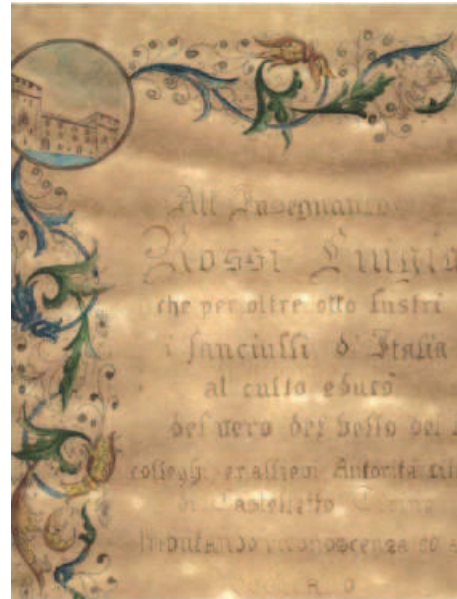 All Insegnante
Rossi Luigia
che per oltre otto lustri
i fanciulli d'Italia
al culto educò
del vero del bello del
colleghi ex allievi Autorità
di Castelletto Ticino
tributando riconoscenza